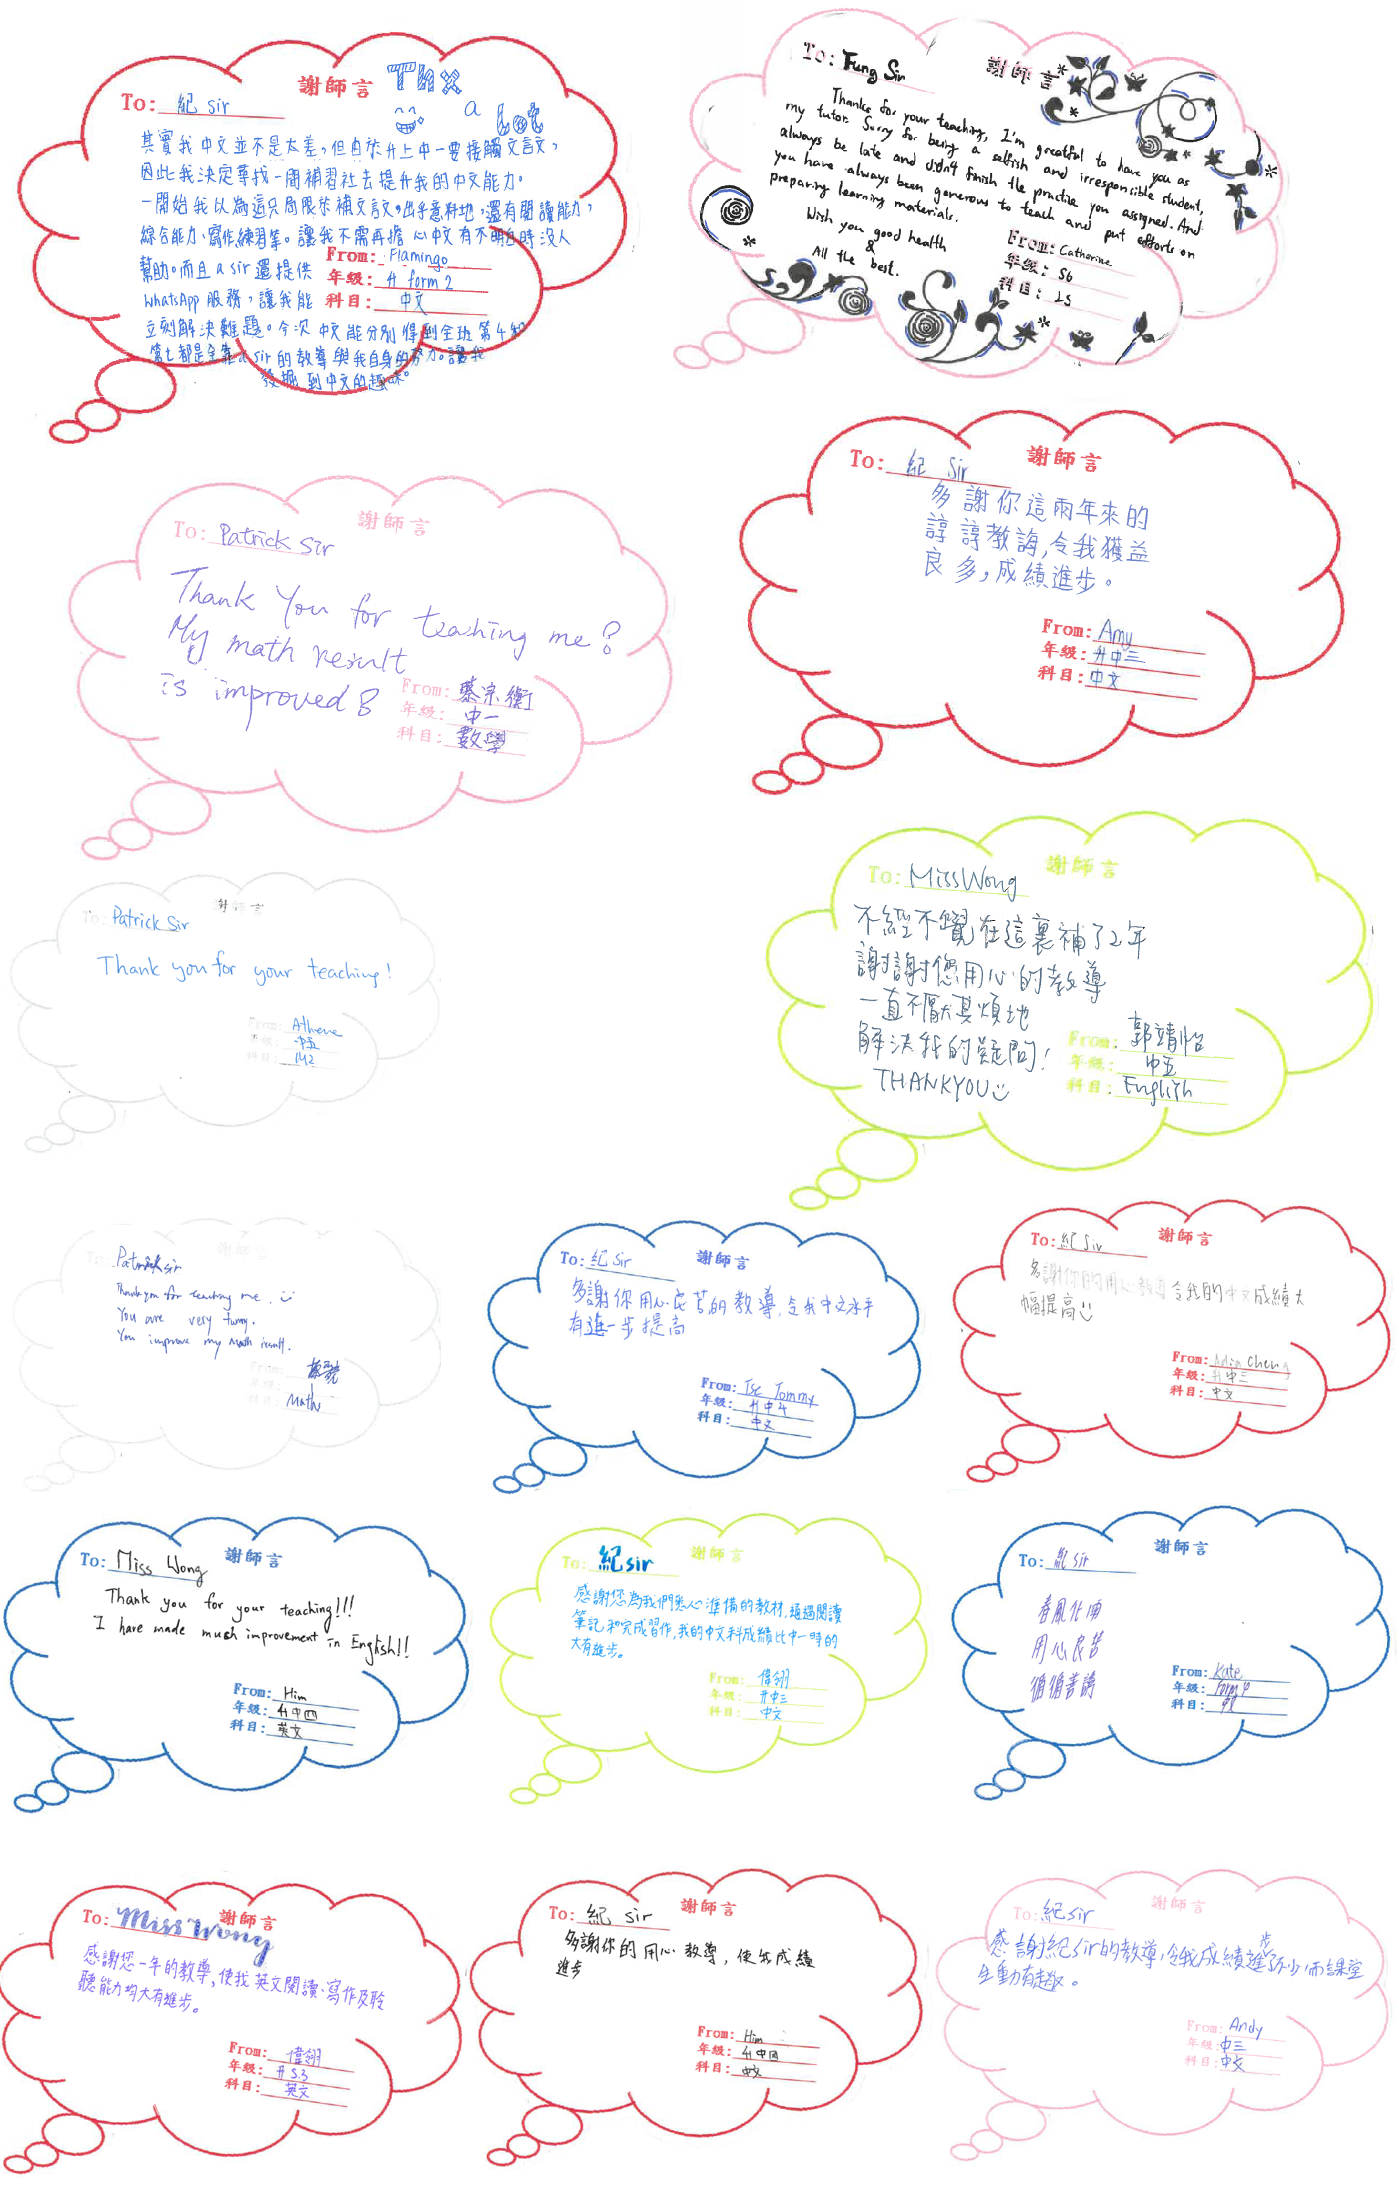 謝師言
Thx
a
Lot
To: 紀 sir
其實我中文並不是太差，但自於升上中一要接觸文言文，
因此我決定尋找一間補習社去提升我的中文能力。
一開始我以為這只局限於補文言文。出乎意料地，還有閱讀能力，
綜合能力、寫作練習等。讓我不需再擔心中文有不明白時沒人
幫助。而且 a sir 還提供
WhatsApp 服務，讓我能
立刻解決難題。今次中文能分別得到全班第4和
第七都是全靠 a sir 的教導與我自身的努力。讓我
發掘到中文的趣味。
From: Flamingo
年級: 升 form 2
科目: 中文
謝師言
To: Fung Sir
Thanks for your teaching, I'm greatful to have you as
my tutor. Sorry for being a selfish and irresponsible student,
always be late and didn't finish the practise you assigned. And
you have always been generous to teach and put efforts on
preparing learning materials.
Wish you good health
&
All the best.
From: Catherine
年級: S6
科目: LS
謝師言
To: Patrick Sir
Thank You for teaching me!
My math result
is improved!
From: 蔡宗衡
年級: 中一
科目: 數學
謝師言
To: 紀 Sir
多謝你這兩年來的
諄諄教誨,令我獲益
良多,成績進步。
From: Amy
年級: 升中三
科目: 中文
謝師言
To: Patrick Sir
Thank you for your teaching!
From: Athene
年級: 中五
科目: M2
謝師言
To: Miss Wong
不經不覺在這裏補了2年
謝謝您用心的教導
一直不厭其煩地
解決我的疑問!
THANKYOU
From: 郭靖怡
年級: 中五
科目: English
謝師言
To: Patrick sir
Thank you for teaching me.
You are very funny.
You improve my math result.
From:
年級:
科目: Maths
謝師言
To: 紀 Sir
多謝你用心良苦的教導,令我中文水平
有進一步提高
From: Tse Tommy
年級: 升中4
科目: 中文
謝師言
To: 紀 Sir
多謝你的用心教導 令我的中文成績大
幅提高
From: Cheng
年級: 升中三
科目: 中文
謝師言
To: Miss Wong
Thank you for your teaching!!!
I have made much improvement in English!!
From: Him
年級: 升中四
科目: 英文
謝師言
To: 紀 sir
感謝您為我們悉心準備的教材,通過閱讀
筆記和完成習作,我的中文科成績比中一時的
大有進步。
From: 偉翎
年級: 升中三
科目: 中文
謝師言
To: 紀 sir
春風化雨
用心良苦
循循善誘
From: Kate
年級: Form 4
科目:
謝師言
To: Miss Wong
感謝您一年的教導,使我英文閱讀、寫作及聆
聽能力均大有進步。
From: 偉翎
年級: 升 S.3
科目: 英文
謝師言
To: 紀 sir
多謝你的用心教導,使我成績
進步
From: Him
年級: 升中四
科目: 中文
謝師言
To: 紀 sir
感謝紀 Sir 的教導,令我成績進步不少,而課堂
生動有趣。
From: Andy
年級: 中三
科目: 中文